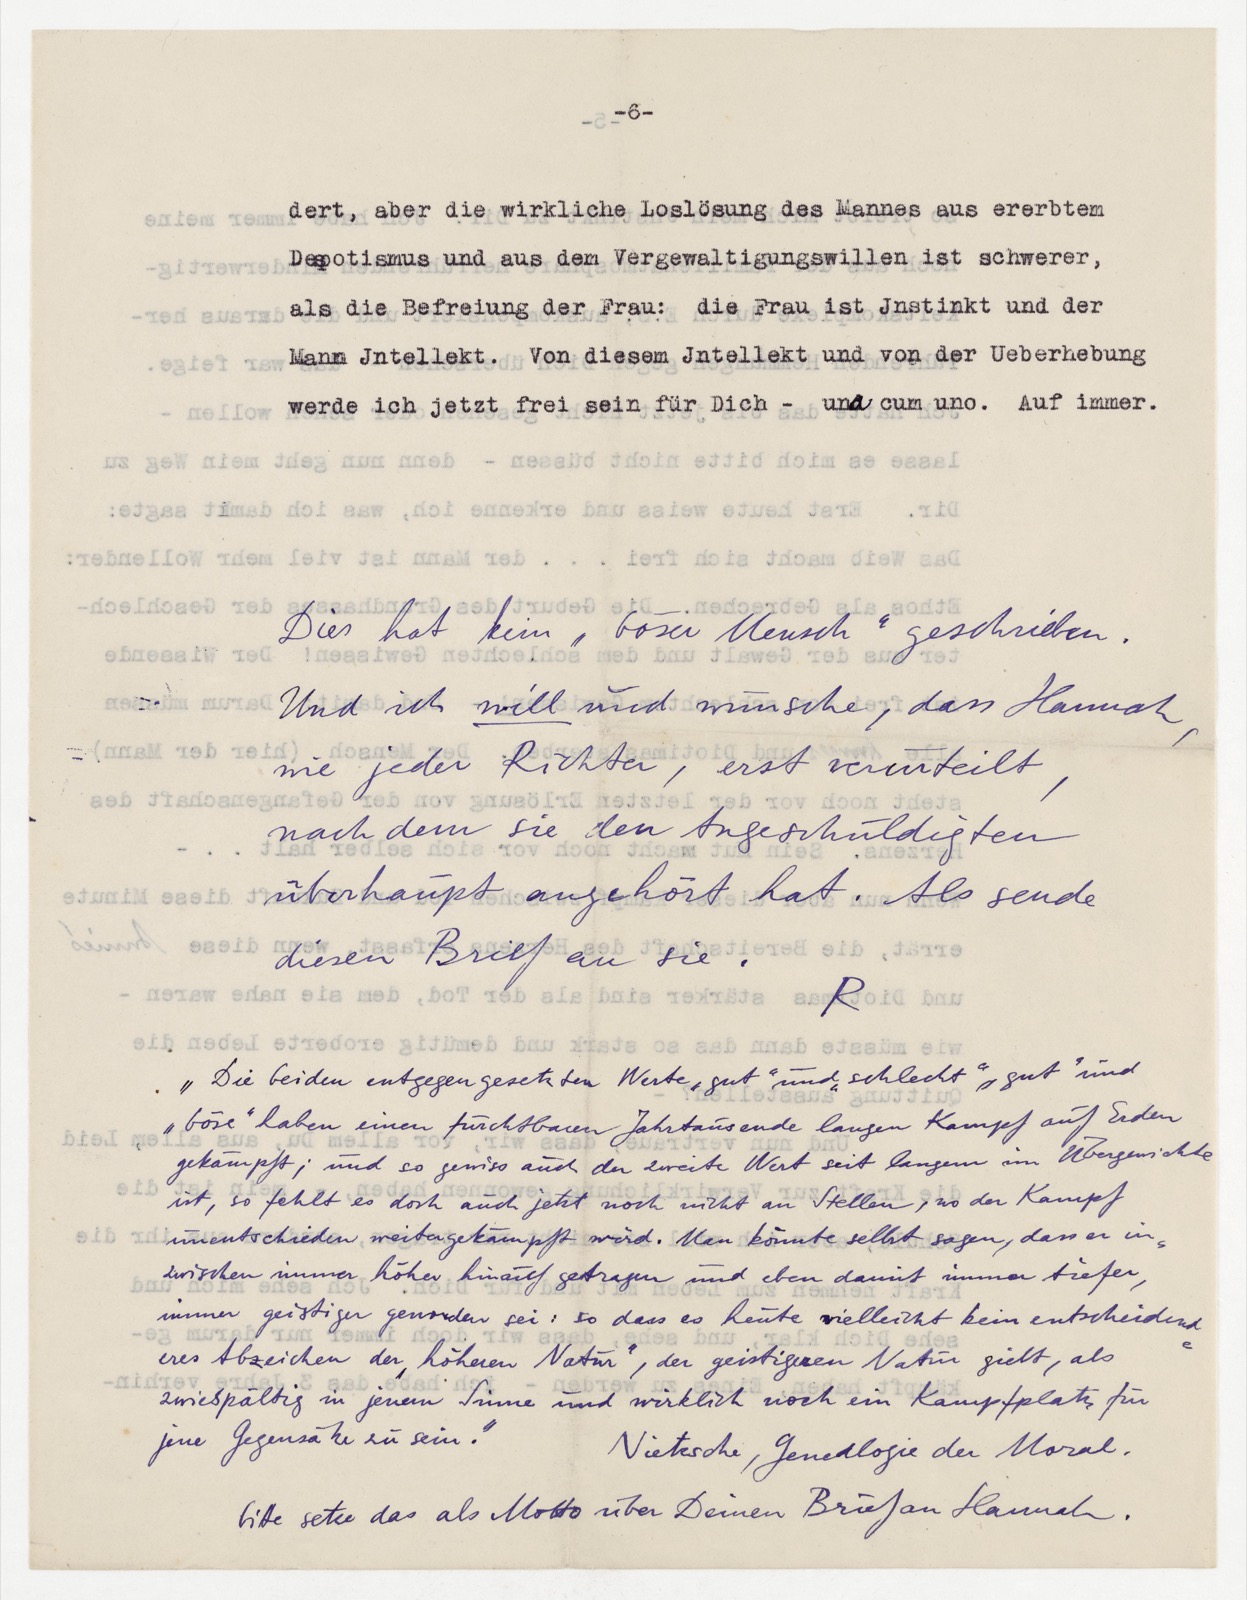 -6-
dert, aber die wirkliche Loslösung des Mannes aus ererbtem
Despotismus und aus dem Vergewaltigungswillen ist schwerer,
als die Befreiung der Frau: die Frau ist Jnstinkt und der
Mann Jntellekt. Von diesem Jntellekt und von der Ueberhebung
werde ich jetzt frei sein für Dich - una cum uno. Auf immer.
Dies hat kein „böser Mensch“ geschrieben.
Und ich will und wünsche, dass Hannah,
wie jeder Richter, erst verurteilt,
nachdem sie den Angeschuldigten
überhaupt angehört hat. Als sende
diesen Brief an sie.
R
„Die beiden entgegengesetzten Werte „gut“ und „schlecht“, „gut“ und
„böse“ haben einen furchtbaren Jahrtausende langen Kampf auf Erden
gekämpft; und so gewiss auch der zweite Wert seit langem im Übergewichte
ist, so fehlt es doch auch jetzt noch nicht an Stellen, wo der Kampf
unentschieden weitergekämpft wird. Man könnte selbst sagen, dass er in=
zwischen immer höher hinauf getragen und eben damit immer tiefer,
immer geistiger geworden sei: so dass es heute vielleicht kein entscheidend=
eres Abzeichen der „höheren Natur“, der geistigeren Natur giebt, als
zwiespältig in jenem Sinne und wirklich noch ein Kampfplatz für
jene Gegensätze zu sein.“
Nietzsche, Genealogie der Moral.
bitte setze das als Motto über Deinen Brief an Hannah.